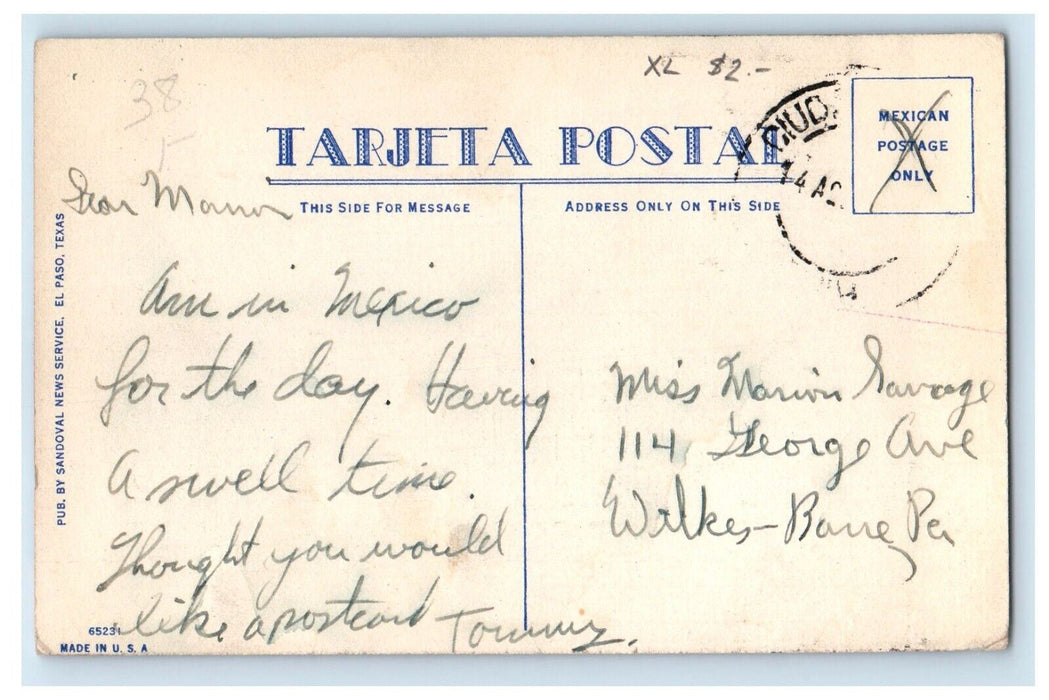 38
XL $2.-
TARJETA POSTAL
CIUD
14 AG
MEXICAN
POSTAGE
ONLY
THIS SIDE FOR MESSAGE
ADDRESS ONLY ON THIS SIDE
Dear Marion
Am in Mexico
for the day. Having
A swell time.
Thought you would
like a postcard Tommy.
Miss Marion Savage
114 George Ave
Wilkes-Barre, Pa
PUB. BY SANDOVAL NEWS SERVICE, EL PASO, TEXAS
65231
MADE IN U. S. A